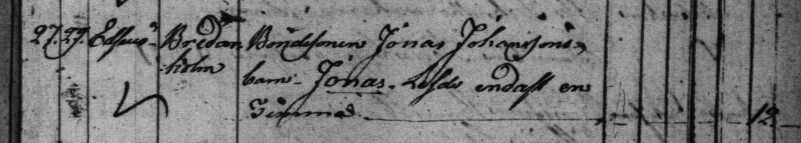 27. 29. Bredan Bondesonen Jonas Johanssons
holm barn Jonas. Lefde endast en
Timma 12